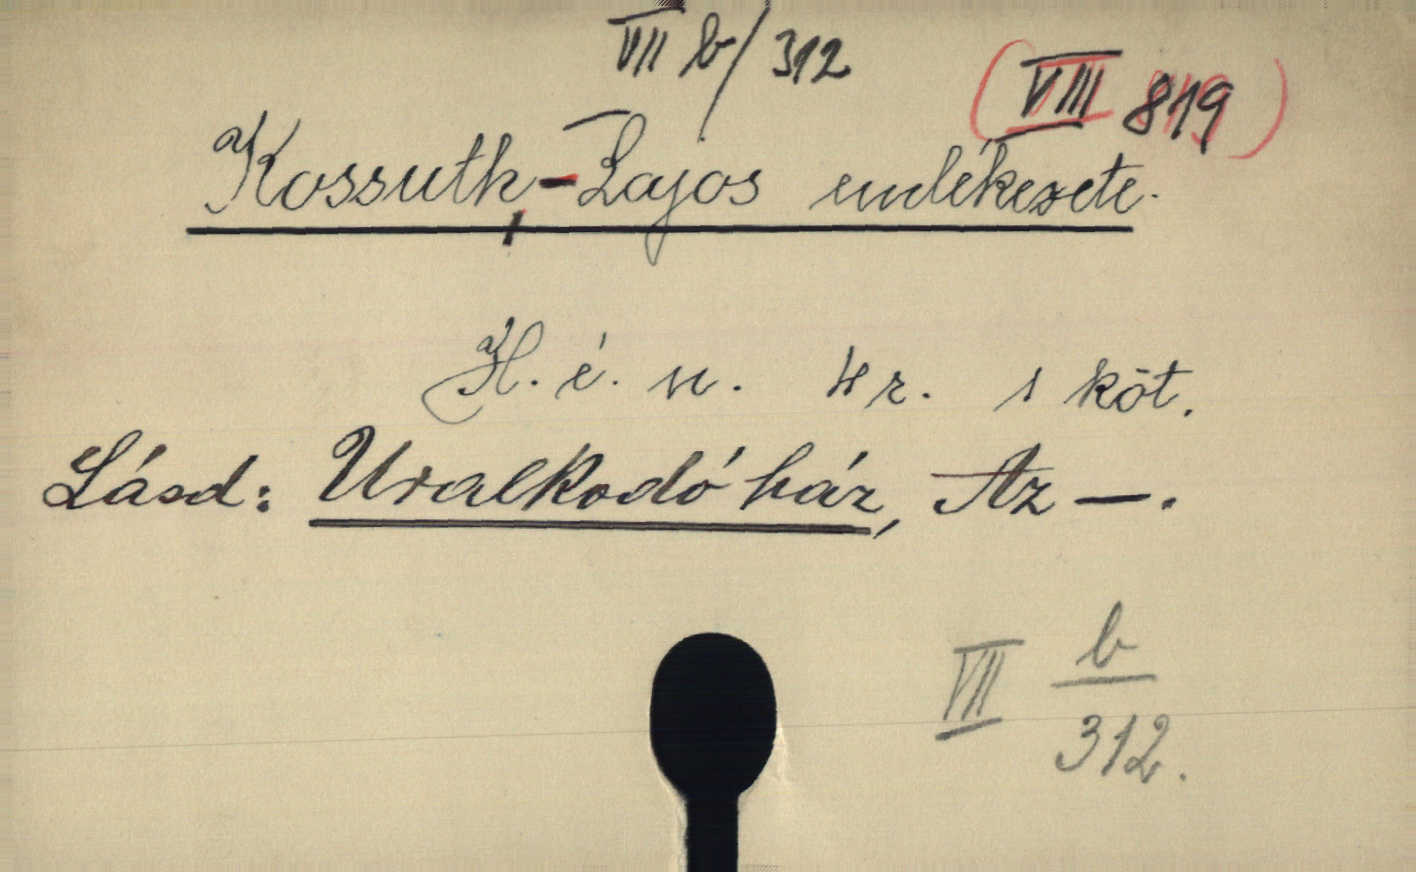 VII b/312
(VIII 819)
Kossuth-Lajos emlékezete.
H. é. n. 4r. 1 köt.
Lásd: Uralkodó ház, Az —.
VII b
312.